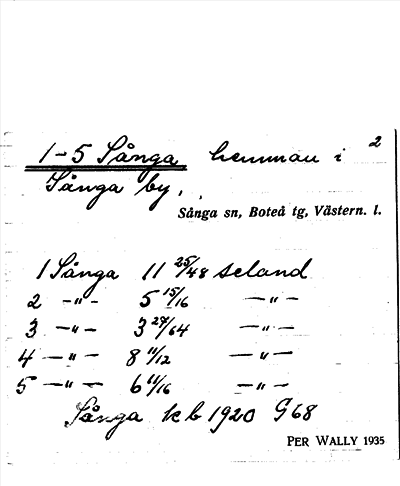 2
1-5 Sånga hemman i
Sånga by.
Sånga sn, Boteå tg, Västern. l.
1 Sånga 11 25/48 seland
2 -"- 5 15/16 -"-
3 -"- 3 27/64 -"-
4 -"- 8 11/12 -"-
5 -"- 6 11/16 -"-
Sånga kb 1920 G68
PER WALLY 1935